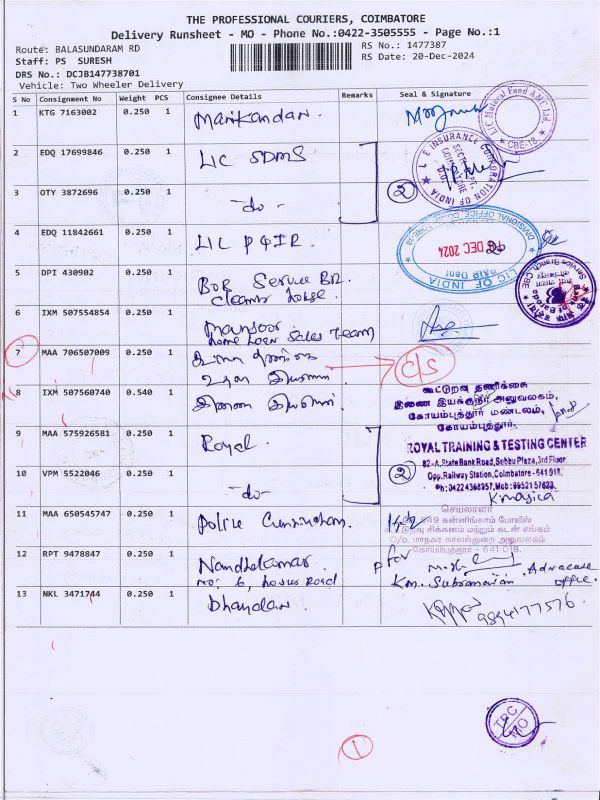 THE PROFESSIONAL COURIERS, COIMBATORE
Delivery Runsheet - MO - Phone No.:0422-3505555 - Page No.:1
Route: BALASUNDARAM RD
RS No.: 1477387
Staff: PS SURESH
RS Date: 20-Dec-2024
DRS No.: DCJB147738701
Vehicle: Two Wheeler Delivery
S No Consignment No Weight PCS Consignee Details Remarks Seal & Signature
1 KTG 7163002 0.250 1 Manikandan.
LIC Mutual Fund AMC Ltd
CBE-18.
2 EDQ 17699846 0.250 1 LIC SDMS
LIFE INSURANCE CORPORATION OF INDIA
3 OTY 3872696 0.250 1 -do-
2
4 EDQ 11842661 0.250 1 LIC P&IR.
DIVISIONAL OFFICE, COIMBATORE-18
DEC 2024
LIC OF INDIA
5 DPI 430902 0.250 1 BOB Service BR.
Clearing house
Bank of Baroda
Service Branch, CBE
6 IXM 507554854 0.250 1 Mansoor
home loan sales Team
7 MAA 706507009 0.250 1
C/S
8 IXM 507560740 0.540 1
கூட்டுறவு தணிக்கை
இணை இயக்குநர் அலுவலகம்,
கோயம்புத்தூர் மண்டலம்,
கோயம்புத்தூர்.
9 MAA 575926581 0.250 1 Royal.
ROYAL TRAINING & TESTING CENTER
82-A, State Bank Road, Subbu Plaza, 3rd Floor
Opp. Railway Station, Coimbatore - 641 018.
10 VPM 5522046 0.250 1 -do-
2
11 MAA 650545747 0.250 1 Police Cunningham.
செயலாளர்
549 கன்னிங்காம் போலீஸ்
கூட்டுறவு சிக்கனம் மற்றும் கடன் சங்கம்
C/o. மாநகர காவல்துறை அலுவலகம்
கோயம்புத்தூர் - 641 018.
12 RPT 9478847 0.250 1 Nandhakumar
No: 6, hosur Road
for
Advocate
office.
13 NKL 3471744 0.250 1 Dhandan
9894177576.
TPC
MO
1